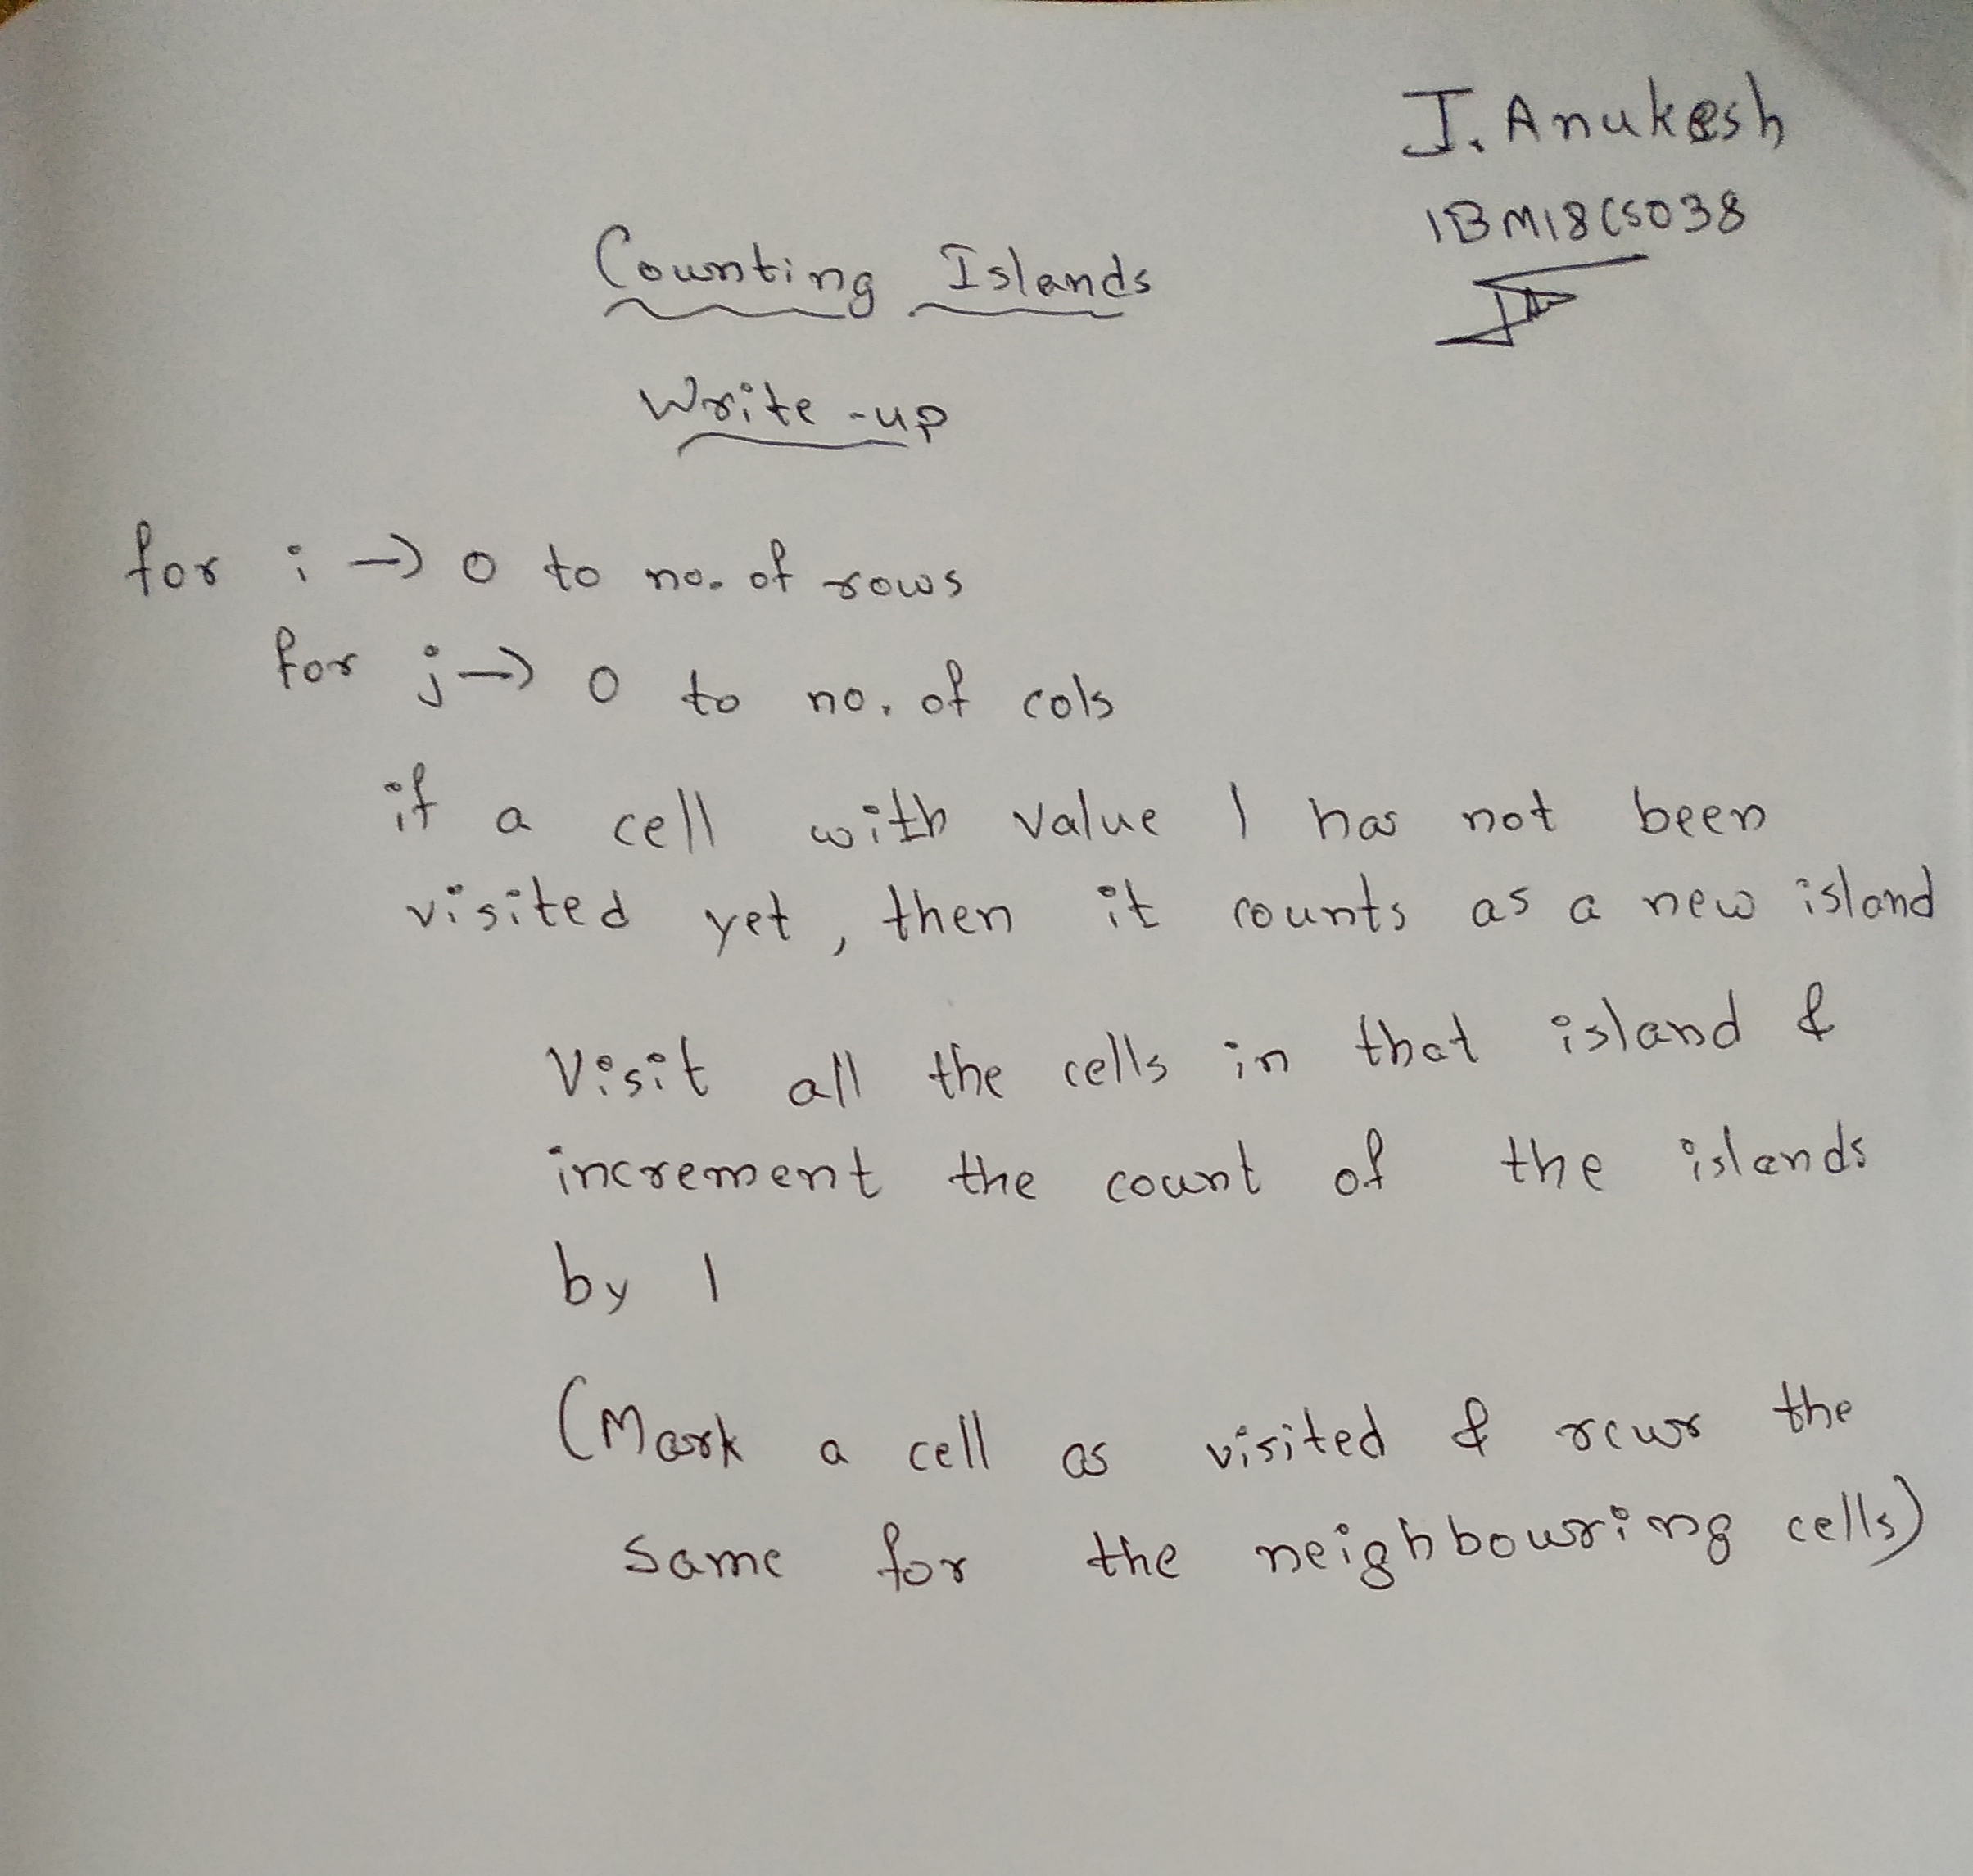 J. Anukesh
1BM18CS038
Counting Islands
Write-up
for i → 0 to no. of rows
for j → 0 to no. of cols
if a cell with value 1 has not been
visited yet, then it counts as a new island
Visit all the cells in that island &
increment the count of the islands
by 1
(Mark a cell as visited & recur the
same for the neighbouring cells)